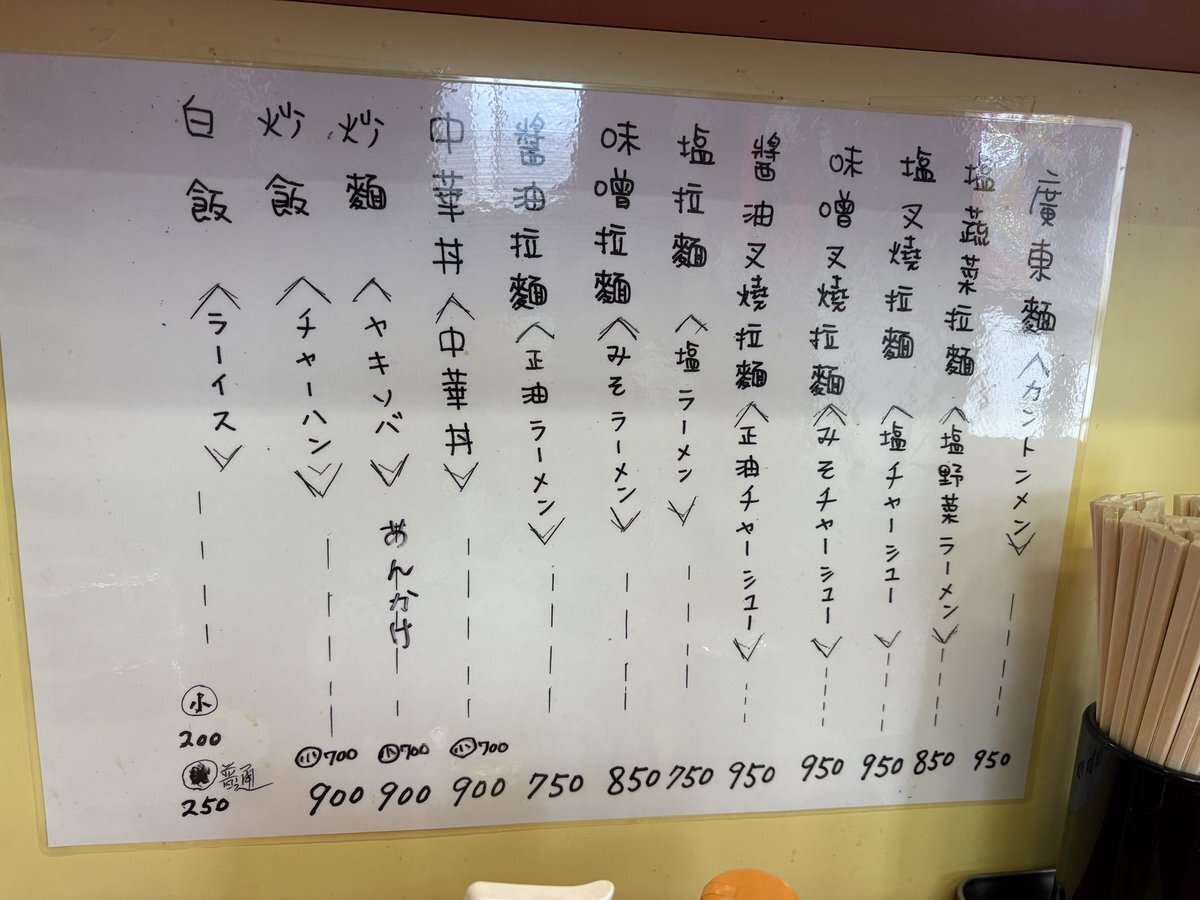 廣東麵〈カントンメン〉 950
塩蔬菜拉麵〈塩野菜ラーメン〉 850
塩叉燒拉麵〈塩チャーシュー〉 950
味噌叉燒拉麵〈みそチャーシュー〉 950
醬油叉燒拉麵〈正油チャーシュー〉 950
塩拉麵〈塩ラーメン〉 750
味噌拉麵〈みそラーメン〉 850
醬油拉麵〈正油ラーメン〉 750
中華丼〈中華丼〉 小700 900
炒麵〈ヤキソバ〉あんかけ 小700 900
炒飯〈チャーハン〉 小700 900
白飯〈ラーイス〉 小200 普通250